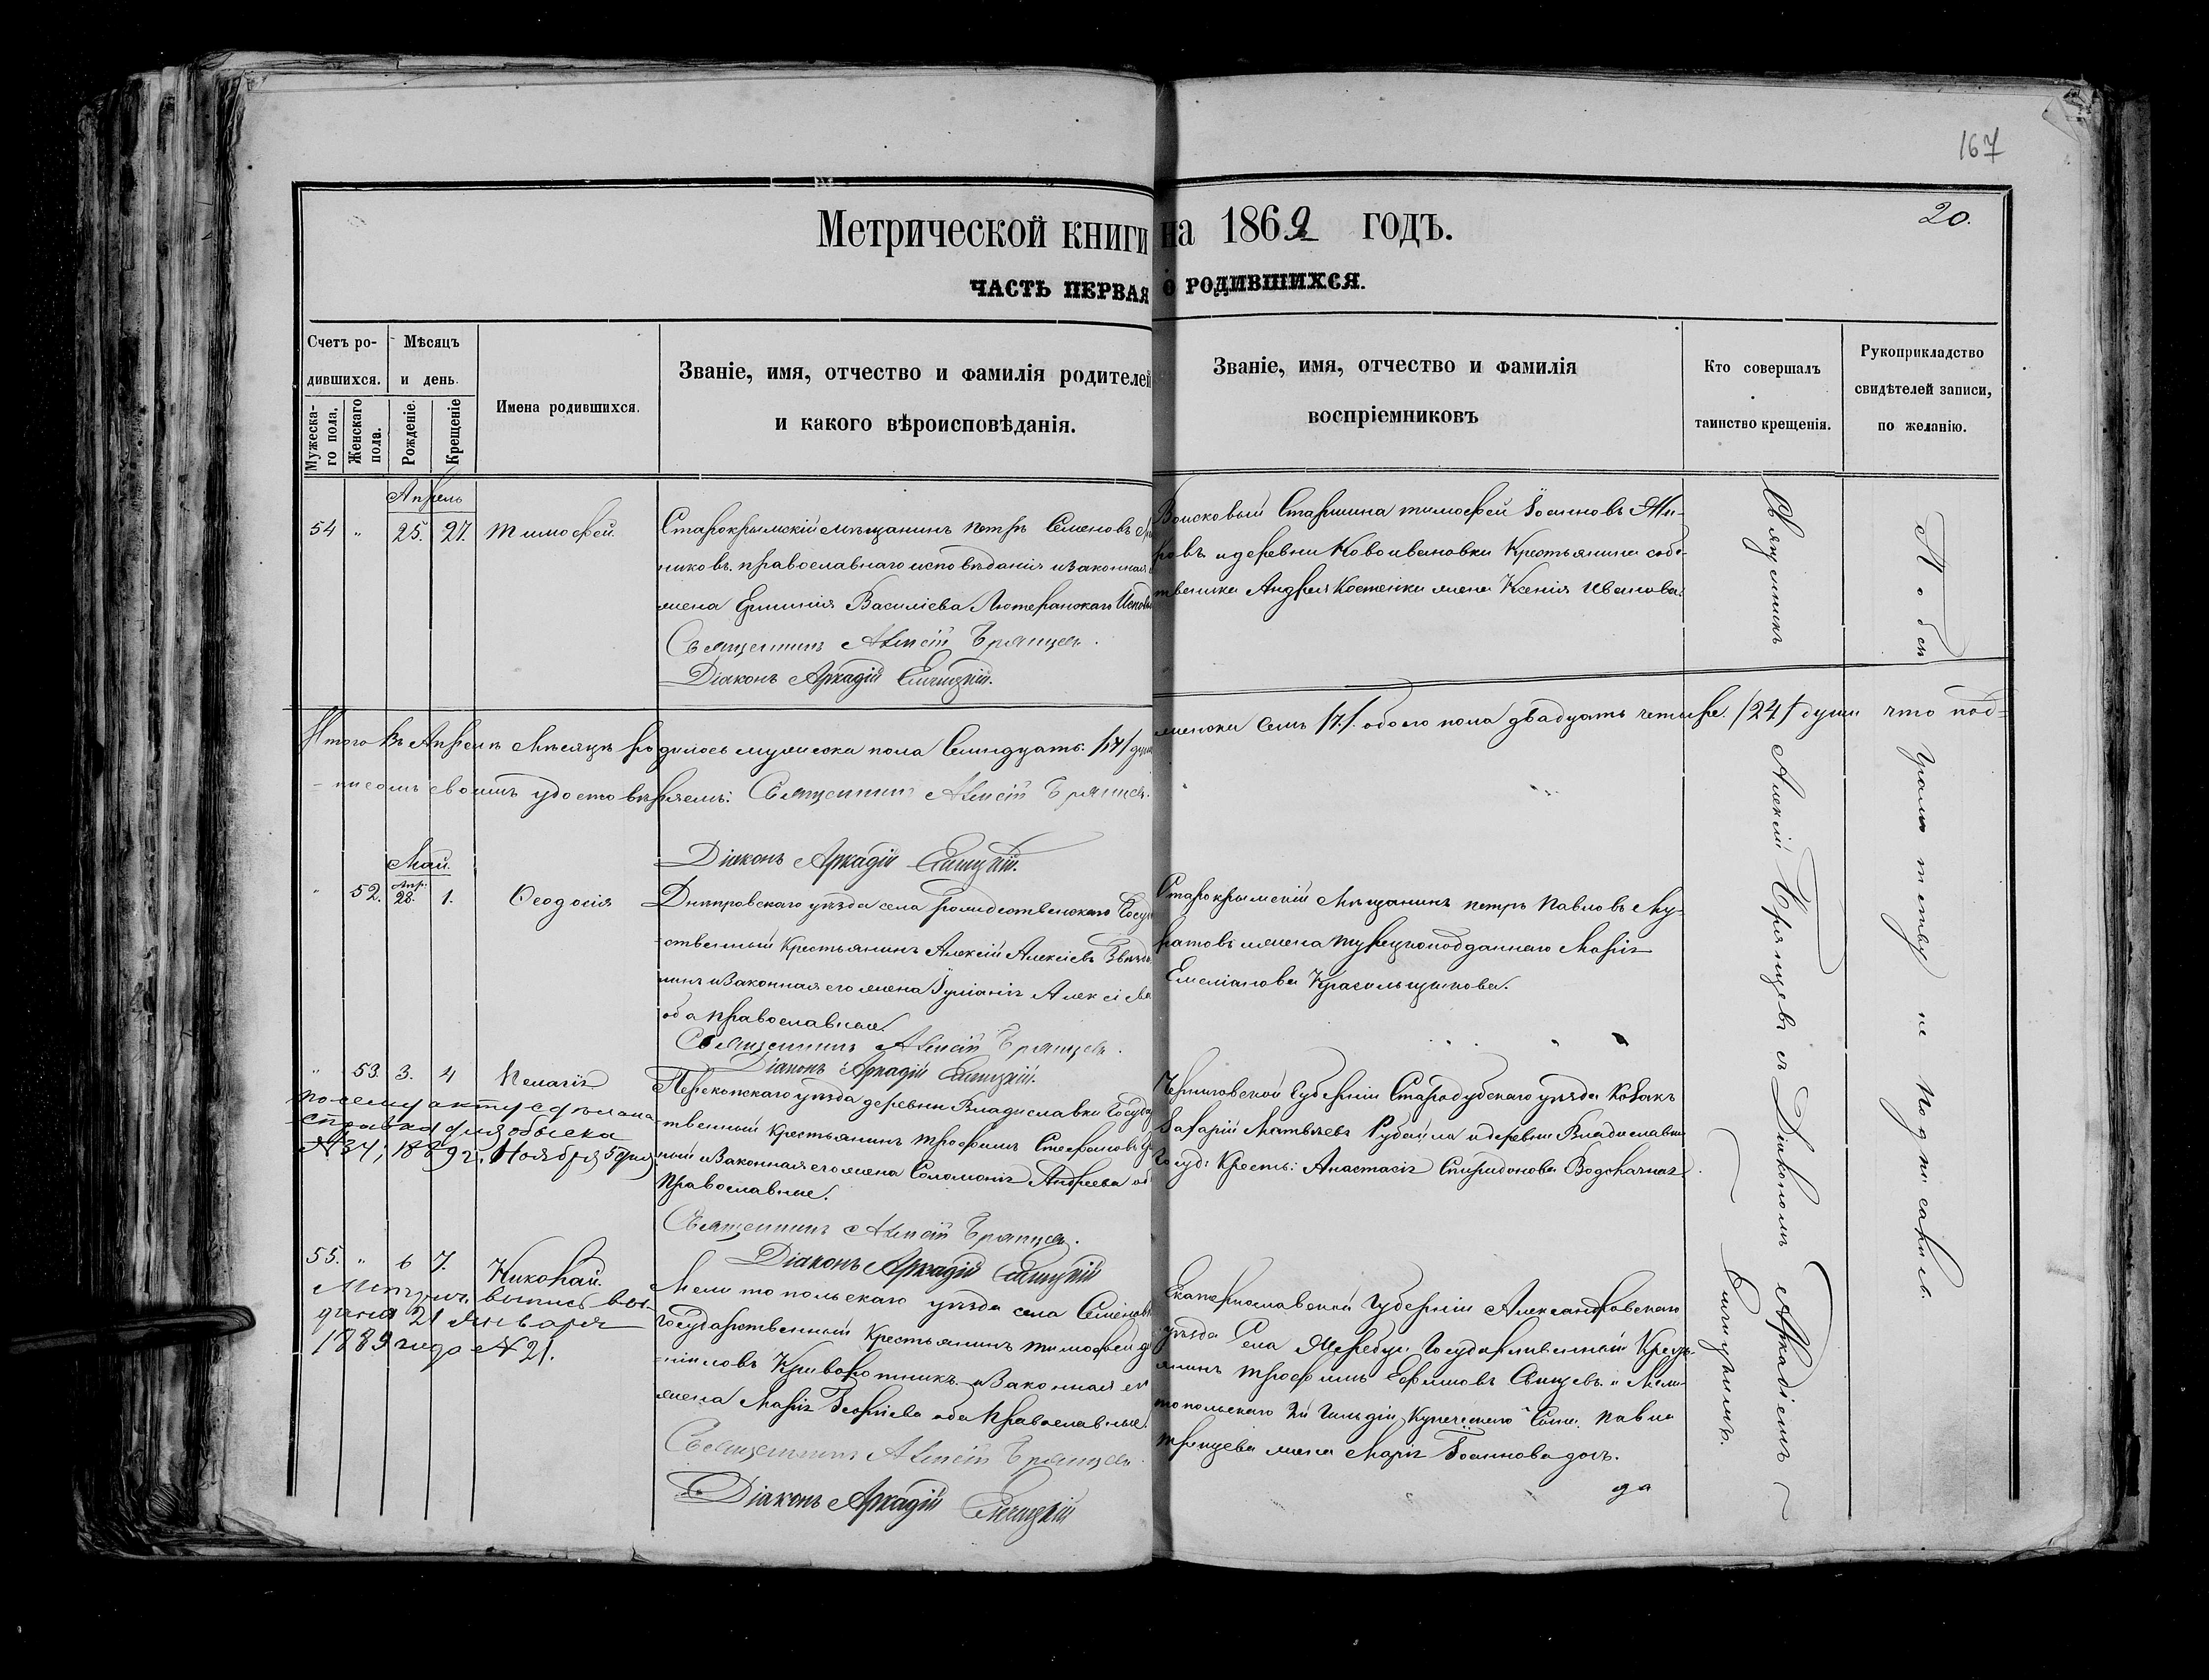 167
20.
Метрической книги на 1869 годъ.
ЧАСТЬ ПЕРВАЯ О РОДИВШИХСЯ.
Счетъ родившихся.
Мужескаго пола.
Женскаго пола.
Мѣсяцъ и день.
Рожденіе.
Крещеніе
Имена родившихся.
Званіе, имя, отчество и фамилія родителей
и какого вѣроисповѣданія.
Званіе, имя, отчество и фамилія
воспріемниковъ
Кто совершалъ
таинство крещенія.
Рукоприкладство
свидѣтелей записи,
по желанію.
Апрель
54 " 25. 27. Тимофей.
Старокрымскій мѣщанинъ Петръ Семеновъ
никовъ. православнаго исповѣданія и законная
жена Василіева Лютеранскаго
Священникъ Алексій Брянцевъ.
Діаконъ Аркадій
Воисковый Старшина тимофей Іоанновъ
ровъ и деревни Новоивановки Крестьянина собс-
твеника Андрея Костенки жена Ксенія Иванова.
Итого въ Апрелѣ Мѣсяцѣ родилось мужеска пола Семндцать /17/ душъ
женска семь /7/. обоего пола двадцать четыре. /24/ души что под-
писомъ своимъ удостовѣряемъ: Священникъ Алексій Брянцевъ.
Діаконъ Аркадій
Май.
" 52. Апр: 28. 1. Ѳеодосія
Днѣпровскаго уѣзда села рождественскаго Госуд
ственный Крестьянинъ Алексій Алексіевъ
и законная его жена Іуліанія Алексіева
оба православные.
Священникъ Алексій Брянцевъ.
Діаконъ Аркадій
Старокрымскій Мѣщанинъ петръ Павловъ Му-
ратовъ и жена турецкоподданнаго Марія
Емеліанова Красильщикова.
" 53. 3. 4 Пелагія
По сему акту сдѣлана
справка для обыска
№34; 1889 г. Ноября 5 дня
Перекопскаго уѣзда деревни Владиславки Госуда
твенный Крестьянинъ трофимъ Стефановъ
ный и законная его жена Соломонія Андреева об
Православные.
Священникъ Алексій Брянцевъ.
Діаконъ Аркадій
Черниговской Губерніи Стародубскаго уѣзда Козакъ
Захарій Матвѣевъ и деревни Владиславки
Госуд: Кресть: Анастасія Спиридонова
55. " 6 7. Николай.
Метрич. выпись вы-
дана 21 Января
1889 года №21.
Мелитопольскаго уѣзда села
Государственный Крестьянинъ тимофей
ніиловъ и законная ег
жена Марія Георгіева оба Православные.
Священникъ Алексій Брянцевъ
Діаконъ Аркадій
Екатеринославской Губерніи Александровскаго
уѣзда Села Жеребца Государственный Кресть-
янинъ трофимъ Ефимовъ и Мели-
топольскаго 2й Гильдіи Купеческаго Павла
жена Марія Іоаннова дочь.
да
Священникъ Алексій Брянцевъ съ Діакономъ Аркадіемъ
По безграмотству не Подписались.